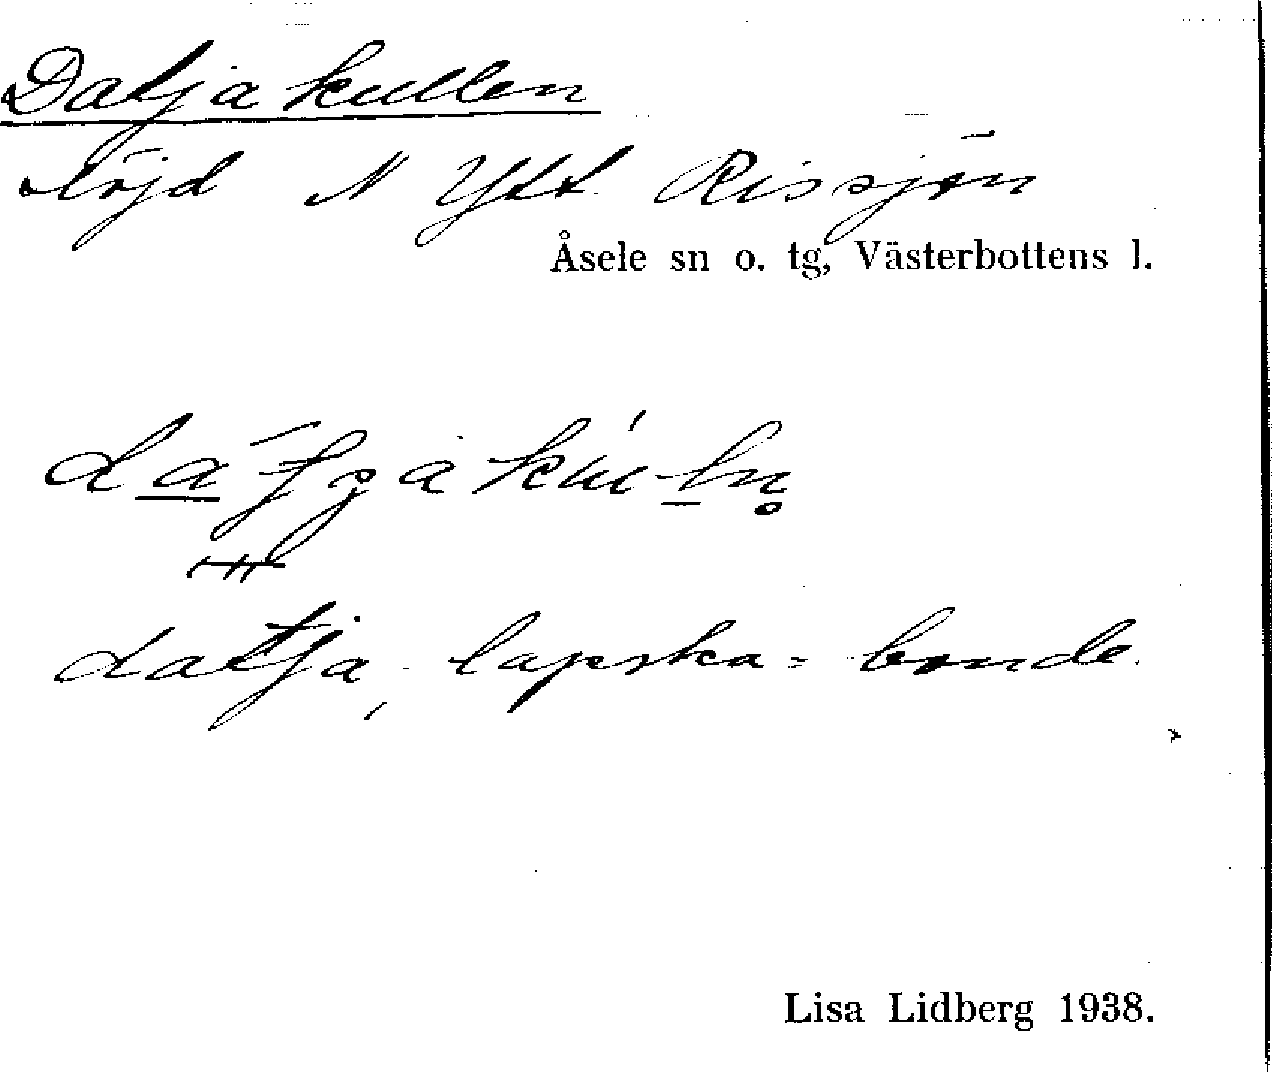 Datjakullen
höjd N Ytt. Rissjön
Åsele sn o. tg, Västerbottens l.
datja, lapska = bonde.
Lisa Lidberg 1938.